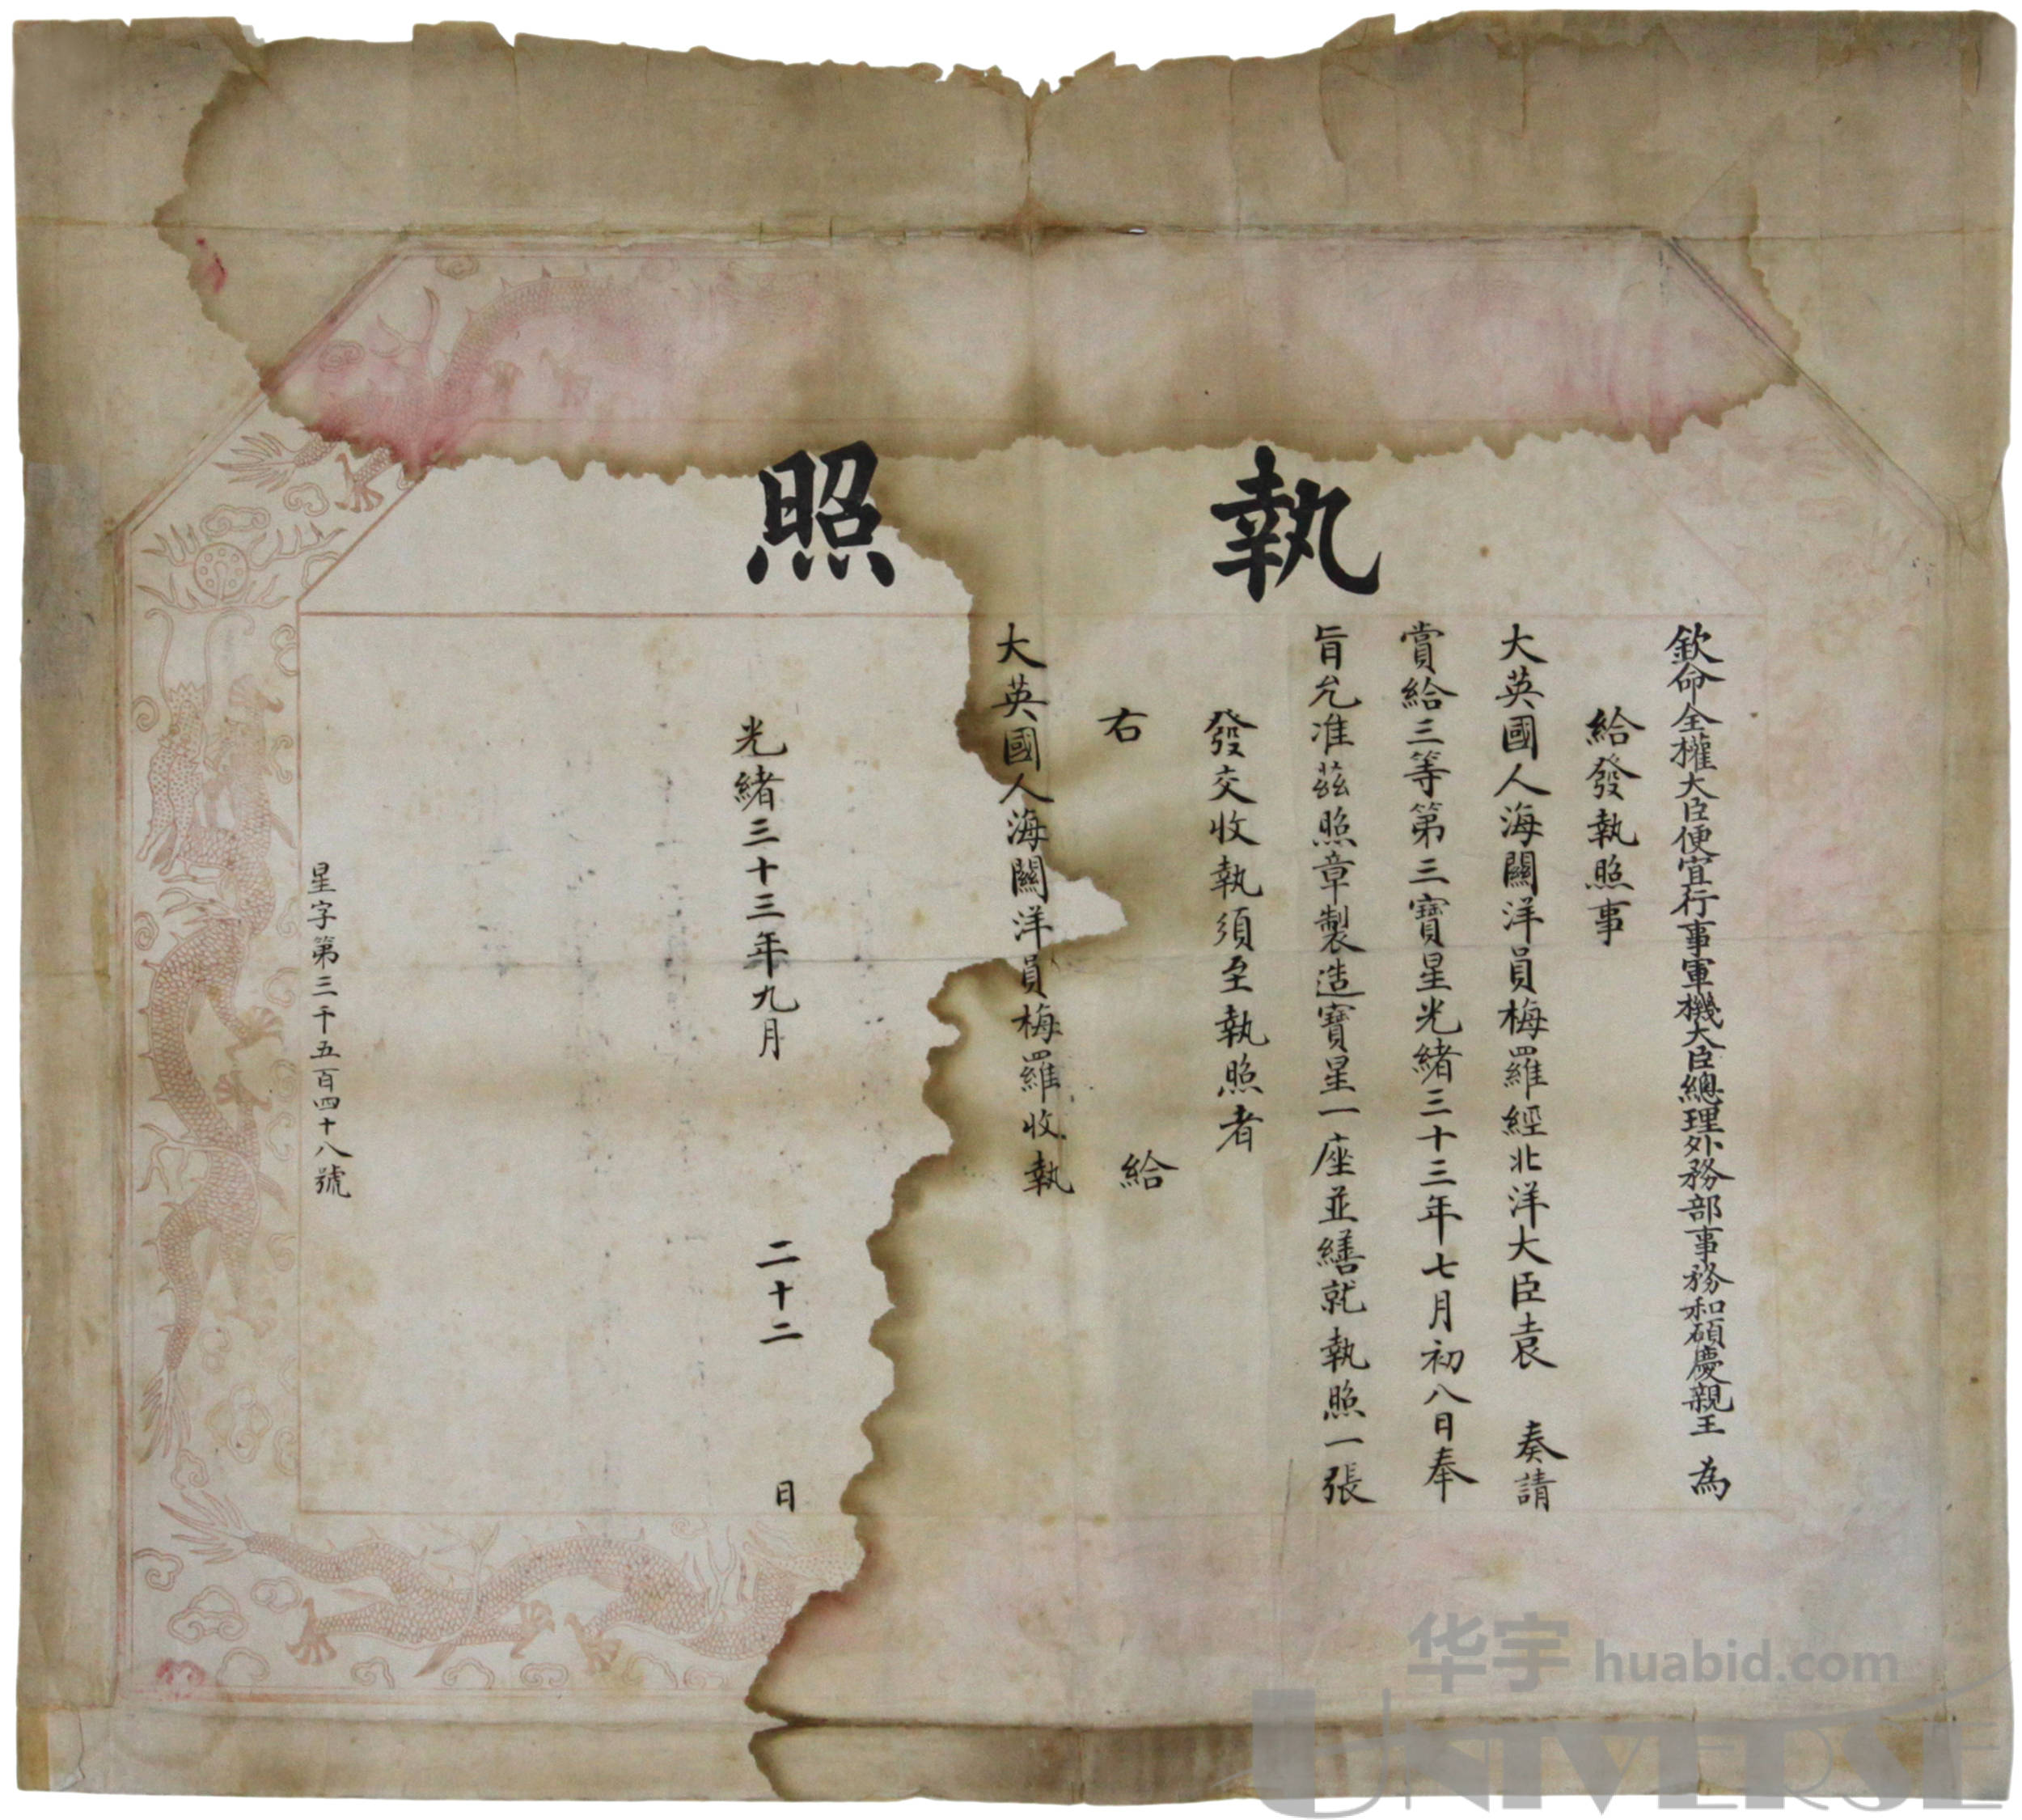 執照
欽命全權大臣便宜行事軍機大臣總理外務部事務和碩慶親王 為
給發執照事
大英國人海關洋員梅羅經北洋大臣袁 奏請
賞給三等第三寶星光緒三十三年七月初八日奉
旨允准茲照章製造寶星一座並繕就執照一張
發交收執須至執照者
右 給
大英國人海關洋員梅羅收執
光緒三十三年九月 二十二 日
星字第三千五百四十八號
华宇 huabid.com
UNIVERSE